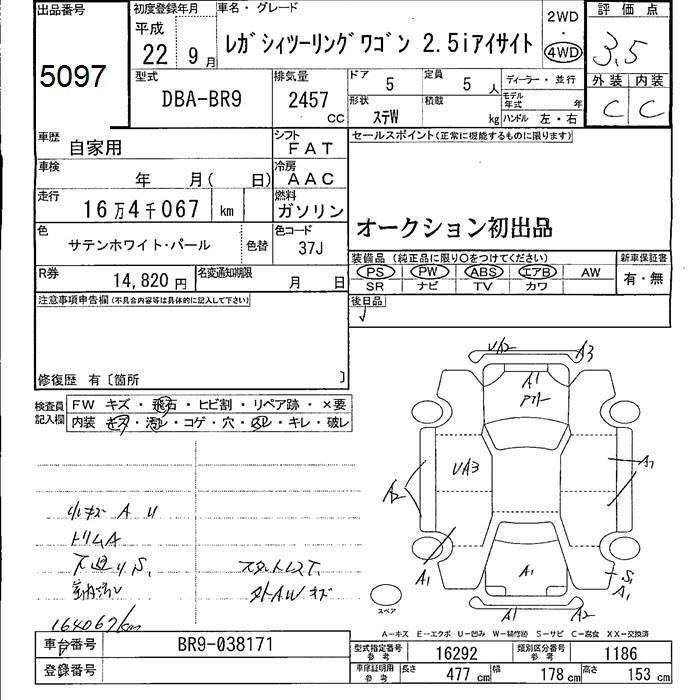 出品番号
5097
初度登録年月
平成
22 9月
車名・グレード
レガシィツーリングワゴン 2.5iアイサイト
2WD
・
4WD
評価点
3.5
外装 内装
C C
型式
DBA-BR9
排気量
2457
CC
ドア
5
定員
5 人
形状
ステW
積載
kg
ディーラー・並行
モデル年式 年
ハンドル 左・右
車歴
自家用
シフト
FAT
車検
年 月( 日)
冷房
AAC
走行
16万4千067 km
燃料
ガソリン
色
サテンホワイト・パール
色替
色コード
37J
R券
14,820円
名変通知期限
月 日
セールスポイント(正常に機能するものに限ります)
オークション初出品
装備品(純正品に限り○をつけてください)
新車保証書
PS PW ABS エアB AW
SR ナビ TV カワ
有・無
後日品
注意事項申告欄(不具合内容等は具体的に記入して下さい)
修復歴 有〔箇所 〕
検査員記入欄
FW キズ・飛石・ヒビ割・リペア跡・×要
内装 キズ・汚レ・コゲ・穴・スレ・キレ・破レ
小キズ A U
トリムA
下廻りS.
室内汚レ
スタットレスT.
外AWキズ
164067km
UA2
A3
A1
UA3
A2
A1
A1
A1
S1
A1
A1
A2
スペア
A－キズ E－エクボ U－凹み W－補修跡 S－サビ C－腐食 XX－交換済
車台番号
BR9-038171
登録番号
型式指定番号
参考
16292
類別区分番号
参考
1186
車庫証明用
参考
長さ 477 cm
幅 178 cm
高さ 153 cm